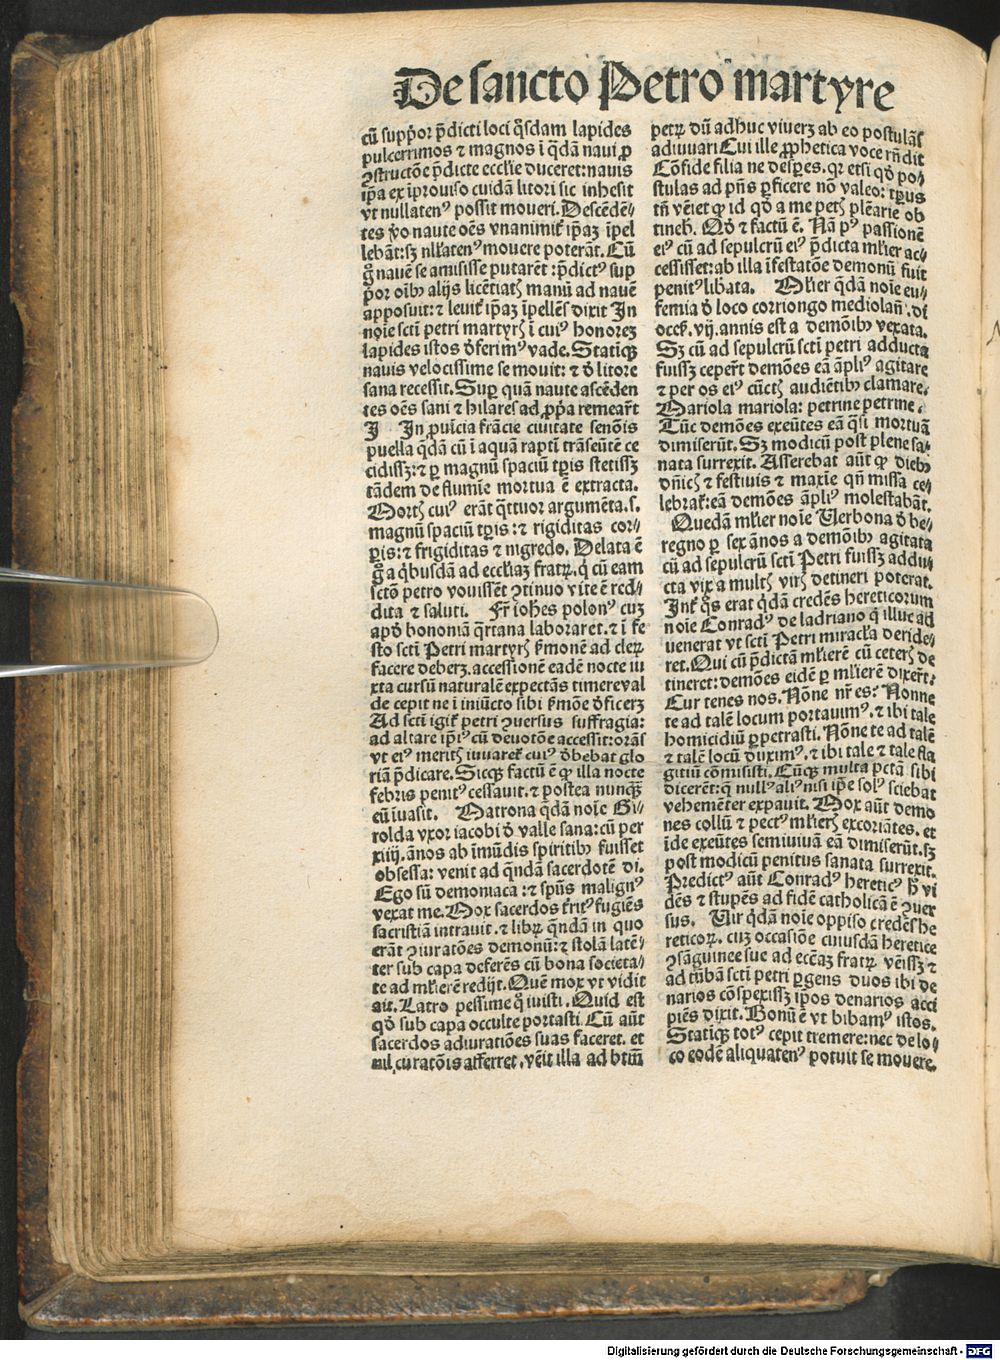 De sancto Petro martyre
cū supp̄or p̄dicti loci q̄sdam lapides
pulcerrimos ⁊ magnos ī q̄dā naui ꝓ
ꝯstructōe p̄dicte ecclīe duceret: nauis
ip̄a ex īprouiso cuidā litori sic inhesit
vt nullatenꝰ possit moueri. Descēdē⸗
tes ꝟo naute oēs vnanimiť ip̄aꝫ īpel
lebāt: sꝫ nłłatenꝰ mouere poterāt. Cū
g̊ nauē se amisisse putarēt: p̄dictꝰ sup
p̄or oībꝰ alijs licētiatꝭ manū ad nauē
apposuit: ⁊ leuiť ip̄aꝫ īpellēs dixit In
noīe scti petri martyrꝭ ī cuiꝰ honoreꝫ
lapides istos d̓ferimꝰ vade. Statiqꝫ
nauis velocissime se mouit: ⁊ d̓ litore
sana recessit. Suꝑ quā naute ascēden
tes oēs sani ⁊ hilares ad ꝓp̄a remeart̄
J In ꝓuīcia frācie ciuitate senōis
puella q̄dā cū ī aquā rapti trāseūtē ce
cidissꝫ: ⁊ ꝑ magnū spaciū tp̄is stetissꝫ
tādem de flumīe mortua ē extracta.
Mortꝭ cuiꝰ erāt q̄ttuor argumēta. s.
magnū spaciū tp̄is: ⁊ rigiditas cor⸗
ꝑis: ⁊ frigiditas ⁊ nigredo. Delata ē
g̊ a q̇busdā ad ecclīaꝫ fratꝝ. q̄ cū eam
sctō petro vouissēt ꝯtinuo vite ē red⸗
dita ⁊ saluti. Fr̄ iohēs polonꝰ cuꝫ
apd̓ bononiā q̄rtana laboraret. ⁊ ī fe
sto scti Petri martyrꝭ ẜmonē ad cleꝝ
facere deberꝫ. accessionē eadē nocte iu
xta cursū naturalē expectās timere val
de cepit ne ī iniūcto sibi ẜmōe d̓ficerꝫ
Ad sctī igiť petri ꝯuersus suffragia:
ad altare ip̄iꝰ cū deuotōe accessit: orās
vt eiꝰ meritꝭ iuuareť cuiꝰ d̓bebat glo
riā p̄dicare. Sicqꝫ factū ē ꝙ illa nocte
febris penitꝰ cessauit. ⁊ postea nunqꝫ
eū īuasit. Matrona q̄dā noīe Gi⸗
rolda vxor iacobi d̓ valle sana: cū per
xiiij. ānos ab īmūdis spiritibꝰ fuisset
obsessa: venit ad q̄ndā sacerdotē di.
Ego sū demoniaca: ⁊ spūs malignꝰ
vexat me. Mox sacerdos t̄ritꝰ fugiēs
sacristiā intrauit. ⁊ librꝝ q̄ndā in quo
erāt ꝯiuratōes demonū: ⁊ stolā latē⸗
ter sub capa deferēs cū bona societa⸗
te ad mł̄ierē redijt. Quē mox vt vidit
ait. Latro pessime q̊ iuisti. Quid est
qd̓ sub capa occulte portasti Cū aūt
sacerdos adiuratiōes suas faceret. et
nil curatōis afferret. vēit illa ad btm̄
petꝝ dū adhuc viuerꝫ ab eo postulās
adiuuari Cui ille ꝓphetica voce rn̄dit
Cōfide filia ne desꝑes. qꝛ etsi qd̓ po⸗
stulas ad p̄ns ꝑficere nō valeo: tp̄us
tn̄ vēiet ꝙ id qd̓ a me petꝭ plēarie ob
tinebꝭ. Qd̓ ⁊ factū ē. Nā pꝰ passionē
eiꝰ cū ad sepulcrū eiꝰ p̄dicta mł̄ier ac⸗
cessisset: ab illa īfestatōe demonū fuit
penitꝰ libata. Mł̄ier q̄dā noīe eu⸗
femia d̓ loco corriongo mediolań. di
oceẜ. vij. annis est a demōibꝰ vexata.
Sꝫ cū ad sepulcrū scti petri adducta
fuissꝫ cepert̄ demōes eā āpliꝰ agitare
⁊ per os eiꝰ cūctꝭ audiētibꝰ clamare.
Mariola mariola: petrine petrine.
Tūc demōes exeūtes eā q̄si mortuā
dimiserūt. Sꝫ modicū post plene sa⸗
nata surrexit. Asserebat aūt ꝙ diebꝰ
dn̄icꝭ ⁊ festiuis ⁊ maxīe qn̄ missa ce⸗
lebraẜ: eā demōes āpliꝰ molestabāt.
Quedā mł̄ier noīe Verbona d̓ be⸗
regno ꝑ sex ānos a demōibꝰ agitata
cū ad sepulcrū scti Petri fuissꝫ addu⸗
cta vix a multꝭ virꝭ detineri poterat.
Inť q̄s erat q̄dā credēs hereticorum
noīe Conradꝰ de ladriano q̄ illuc ad
venerat vt scti Petri miracła deride⸗
ret. Qui cū p̄dictā mł̄ierē cū ceterꝭ de
tineret: demōes eidē ꝑ mł̄ierē dixert̄.
Cur tenes nos. Nōne nr̄ es? Nonne
te ad talē locum portauimꝰ. ⁊ ibi tale
homicidiū ꝑpetrasti. Nōne te ad talē
⁊ talē locū duximꝰ. ⁊ ibi tale ⁊ tale fla
gitiū cōmisisti. Cūqꝫ multa pctā sibi
dicerēt: q̄ nullꝰ aliꝰ nisi ip̄e solꝰ sciebat
vehemēter expauit. Mox aūt demo
nes collū ⁊ pectꝰ mł̄ierꝭ excoriātes. et
īde exeūtes semiuiuā eā dimiserūt. sꝫ
post modicū penitus sanata surrexit.
Predictꝰ aūt Conradꝰ hereticꝰ h̄ vi
dēs ⁊ stupēs ad fidē catholicā ē ꝯuer
sus. Vir q̄dā noīe oppiso credēs he
reticoꝝ. cuꝫ occasiōe cuiusdā heretice
ꝯsāguinee sue ad eccāꝫ fratꝝ vēissꝫ ⁊
ad tūbā scti petri ꝑgens duos ibi de
narios cōspexissꝫ ip̄os denarios acci
piēs dixit. Bonū ē vt bibamꝰ istos.
Statiqꝫ totꝰ cepit tremere: nec de lo⸗
co eodē aliquatenꝰ potuit se mouere.
Digitalisierung gefördert durch die Deutsche Forschungsgemeinschaft - DFG